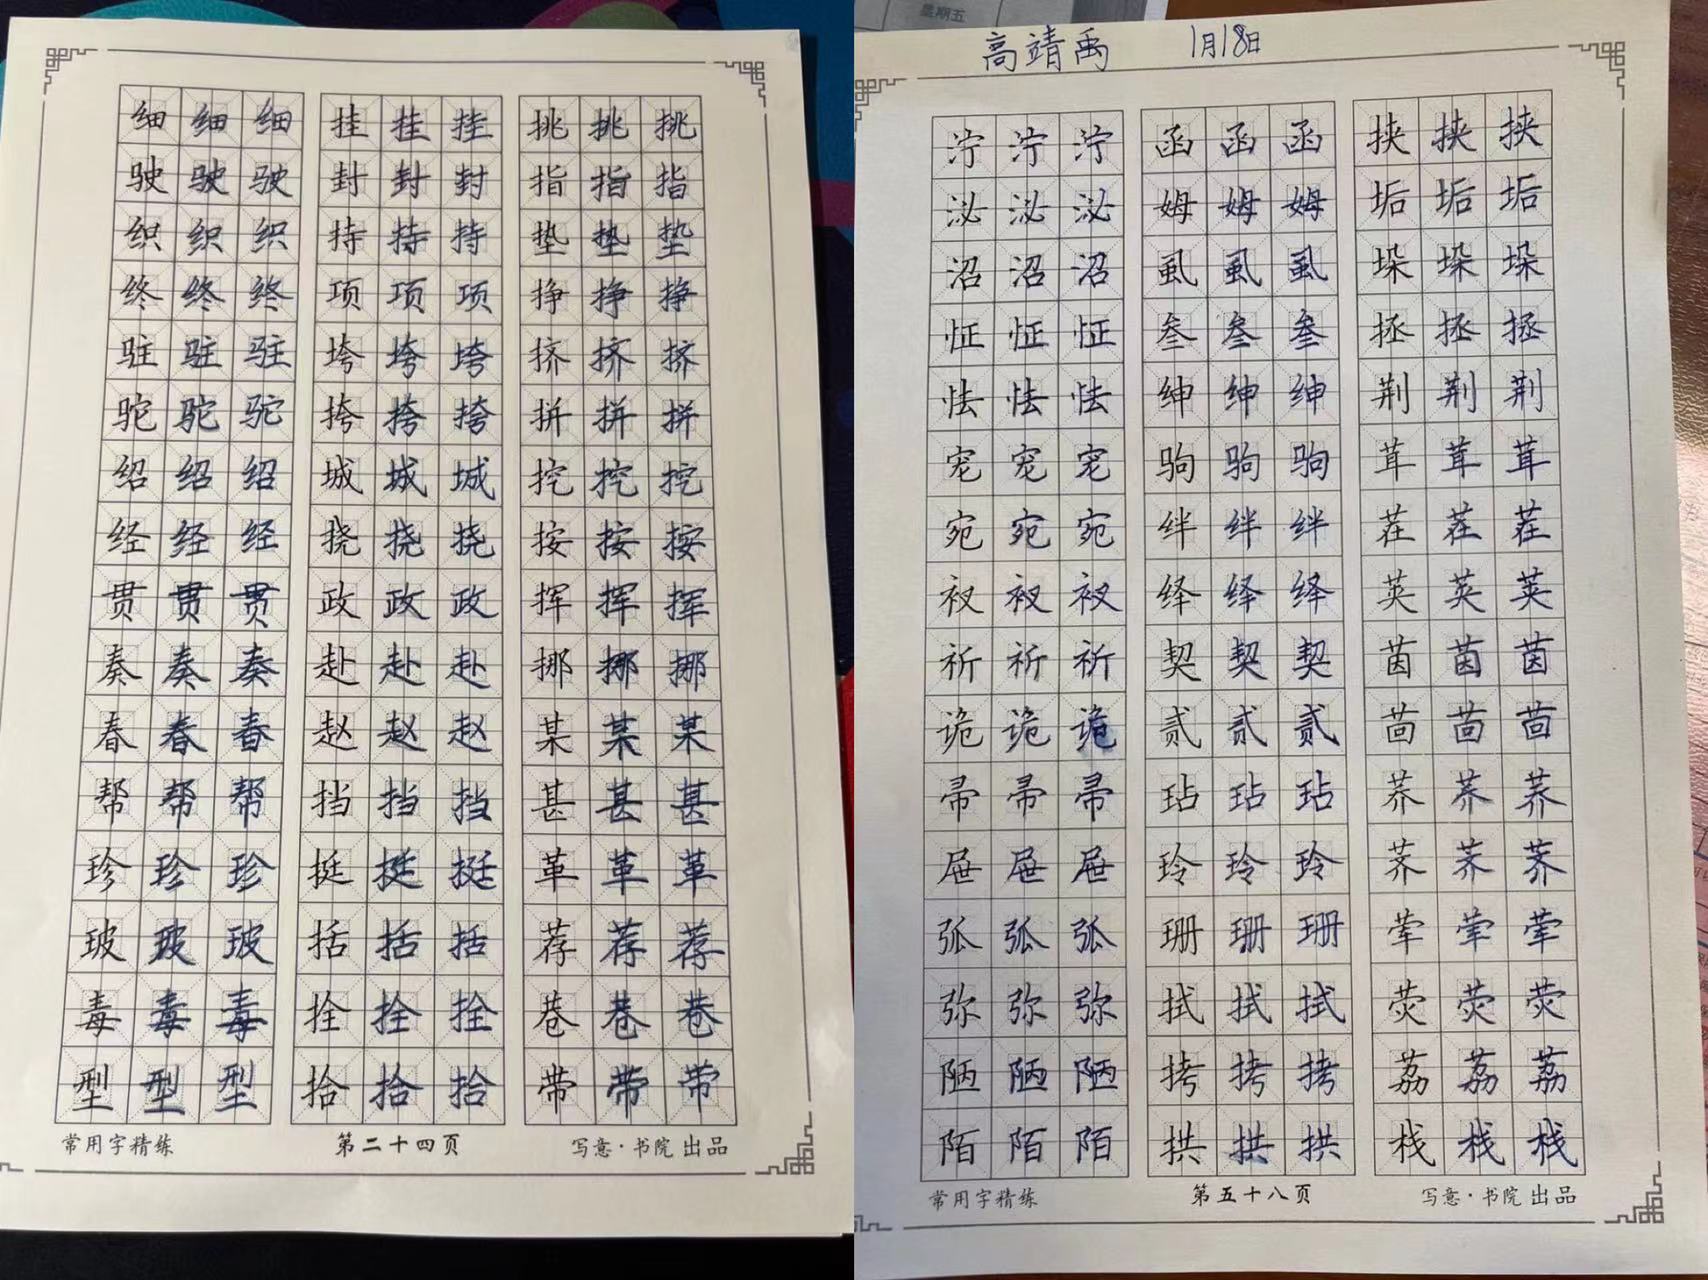 细细细 挂挂挂 挑挑挑
驶驶驶 封封封 指指指
织织织 持持持 垫垫垫
终终终 项项项 挣挣挣
驻驻驻 垮垮垮 挤挤挤
驼驼驼 挎挎挎 拼拼拼
绍绍绍 城城城 挖挖挖
经经经 挠挠挠 按按按
贯贯贯 政政政 挥挥挥
奏奏奏 赴赴赴 挪挪挪
春春春 赵赵赵 某某某
帮帮帮 挡挡挡 甚甚甚
珍珍珍 挺挺挺 革革革
玻玻玻 括括括 荐荐荐
毒毒毒 拴拴拴 巷巷巷
型型型 拾拾拾 带带带
常用字精练 第二十四页 写意·书院 出品
星期五
高靖禹 1月18日
泞泞泞 函函函 挟挟挟
泌泌泌 姆姆姆 垢垢垢
沼沼沼 虱虱虱 垛垛垛
怔怔怔 叁叁叁 拯拯拯
怯怯怯 绅绅绅 荆荆荆
宠宠宠 驹驹驹 茸茸茸
宛宛宛 绊绊绊 茬茬茬
衩衩衩 绎绎绎 荚荚荚
祈祈祈 契契契 茵茵茵
诡诡诡 贰贰贰 茴茴茴
帚帚帚 玷玷玷 荞荞荞
屉屉屉 玲玲玲 荠荠荠
弧弧弧 珊珊珊 荤荤荤
弥弥弥 拭拭拭 荧荧荧
陋陋陋 拷拷拷 荔荔荔
陌陌陌 拱拱拱 栈栈栈
常用字精练 第五十八页 写意·书院 出品